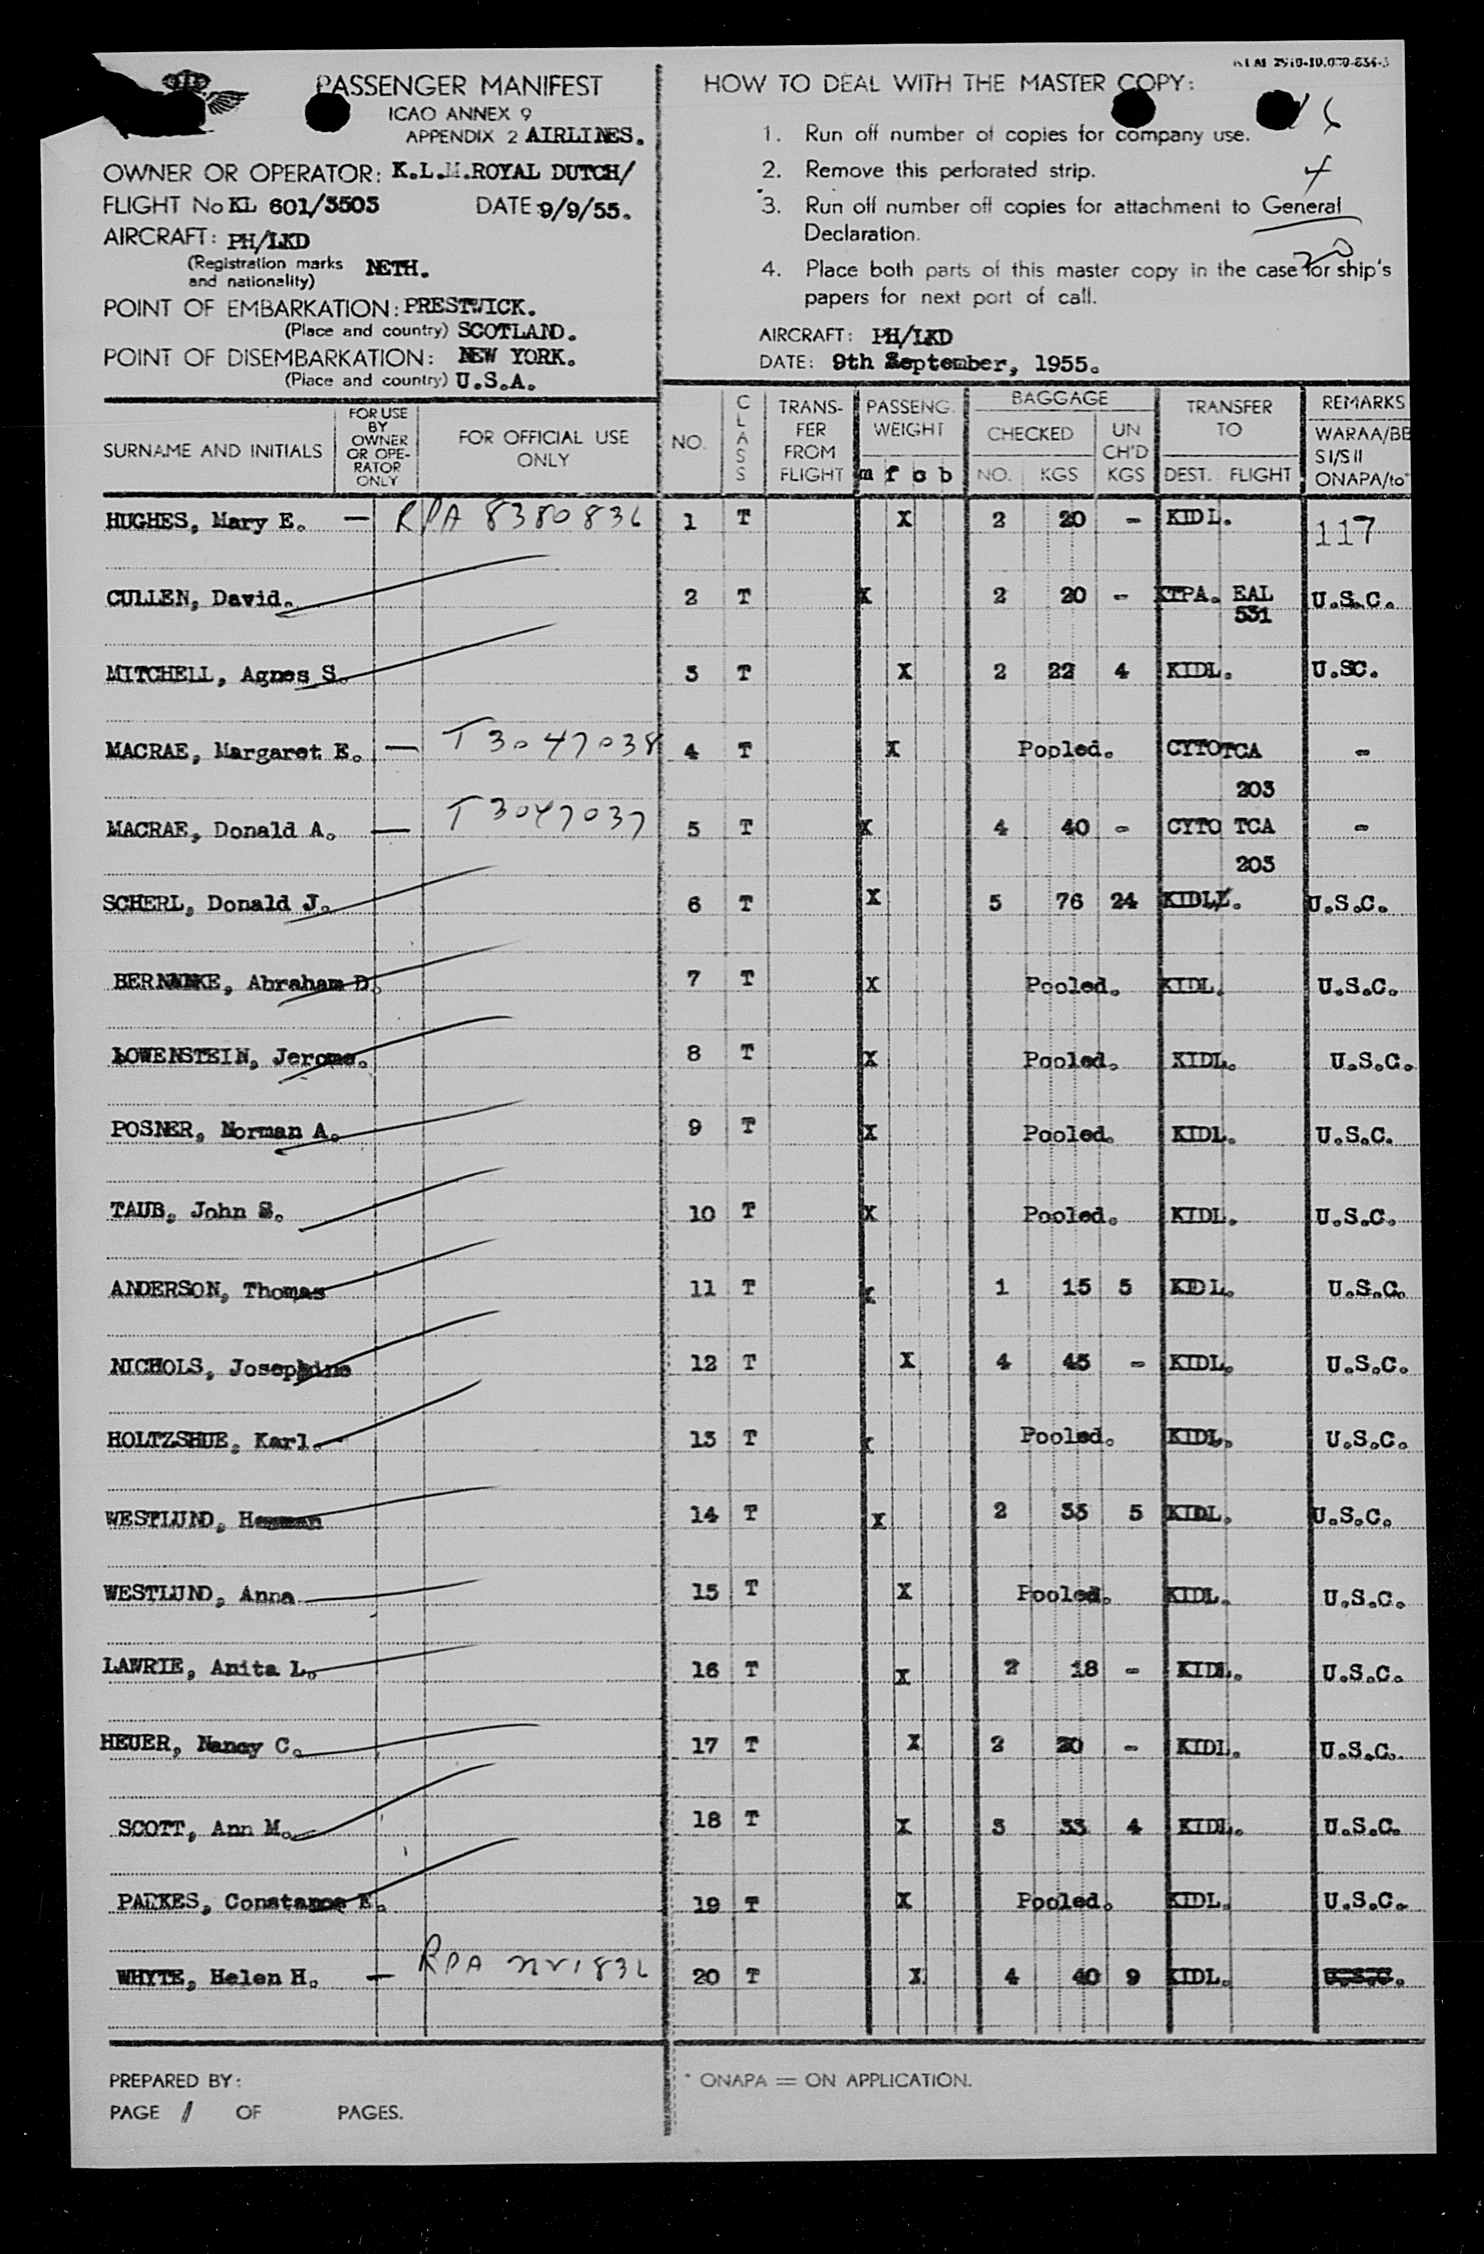 KLM 2910-10.000-854-3
PASSENGER MANIFEST
ICAO ANNEX 9
APPENDIX 2 AIRLINES.
OWNER OR OPERATOR: K.L.M.ROYAL DUTCH/
FLIGHT No KL 601/3503 DATE: 9/9/55.
AIRCRAFT: PH/LKD
(Registration marks and nationality) NETH.
POINT OF EMBARKATION: PRESTWICK.
(Place and country) SCOTLAND.
POINT OF DISEMBARKATION: NEW YORK.
(Place and country) U.S.A.
HOW TO DEAL WITH THE MASTER COPY:
1. Run off number of copies for company use.
2. Remove this perforated strip.
4
3. Run off number off copies for attachment to General
Declaration.
20
4. Place both parts of this master copy in the case for ship's
papers for next port of call.
AIRCRAFT: PH/LKD
DATE: 9th September, 1955.
SURNAME AND INITIALS FOR USE BY OWNER OR OPE- RATOR ONLY FOR OFFICIAL USE ONLY NO. CLASS TRANS- FER FROM FLIGHT PASSENG. WEIGHT m f c b BAGGAGE CHECKED NO. KGS UN CH'D KGS TRANSFER TO DEST. FLIGHT REMARKS WARAA/BE SI/SII ONAPA/to*
HUGHES, Mary E. — RPA 8380836 1 T X 2 20 - KIDL. 117
CULLEN, David. 2 T X 2 20 - KTPA. EAL 531 U.S.C.
MITCHELL, Agnes S. 3 T X 2 22 4 KIDL. U.SC.
MACRAE, Margaret E. — T3047038 4 T X Pooled. CYTO TCA 203 -
MACRAE, Donald A. — T3047037 5 T X 4 40 - CYTO TCA 203 -
SCHERL, Donald J. 6 T X 5 76 24 KIDL. U.S.C.
Abraham D. 7 T X Pooled. KIDL. U.S.C.
LOWENSTEIN, Jerome. 8 T X Pooled. KIDL. U.S.C.
POSNER, Norman A. 9 T X Pooled. KIDL. U.S.C.
TAUB, John S. 10 T X Pooled. KIDL. U.S.C.
ANDERSON, Thomas 11 T X 1 15 5 KIDL. U.S.C.
NICHOLS, Josephine 12 T X 4 45 - KIDL. U.S.C.
HOLTZSHUE, Karl. 13 T X Pooled. KIDL. U.S.C.
WESTLUND, 14 T X 2 35 5 KIDL. U.S.C.
WESTLUND, Anna 15 T X Pooled. KIDL. U.S.C.
LAWRIE, Anita L. 16 T X 2 18 - KIDL. U.S.C.
HEUER, Nancy C. 17 T X 2 20 - KIDL. U.S.C.
SCOTT, Ann M. 18 T X 3 33 4 KIDL. U.S.C.
PARKES, Constance E. 19 T X Pooled. KIDL. U.S.C.
WHYTE, Helen H. — RPA 20 T X 4 40 9 KIDL. U.S.C.
PREPARED BY:
PAGE 1 OF PAGES.
* ONAPA = ON APPLICATION.